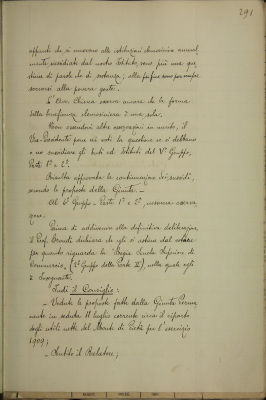 291
appunti che si muovono alle istituzioni elemosiniere annual-
mente sussidiate dal nostro Istituto, sono più una que-
stione di parole che di sostanza; alla fin fine sono pur sempre
soccorsi alla povera gente.
L'On. Chiusa osserva ancora che la forma
della beneficenza elemosiniera è una sola.
Non essendovi altre osservazioni in merito, il
Vice-Presidente pone ai voti la questione se si debbano
o no sussidiare gli Enti ed Istituti del V° Gruppo,
Parte 1ª e 2ª.
Risulta approvata la continuazione dei sussidi,
secondo le proposte della Giunta.-
Al 6° Gruppo - Parte 1ª e 2ª, nessuna osserva-
zione.
Prima di addivenire alla definitiva deliberazione,
il Prof. Brondi dichiara che egli si astiene dal votare
per quanto riguarda la Regia Scuola Superiore di
Commercio, (2° Gruppo della Parte II), nella quale egli
è Insegnante.
Indi il Consiglio:
- Vedute le proposte fatte dalla Giunta Perma-
nente in seduta 11 luglio corrente circa il riparto
degli utili netti del Monte di Pietà per l'esercizio
1909;
- Sentito il Relatore;